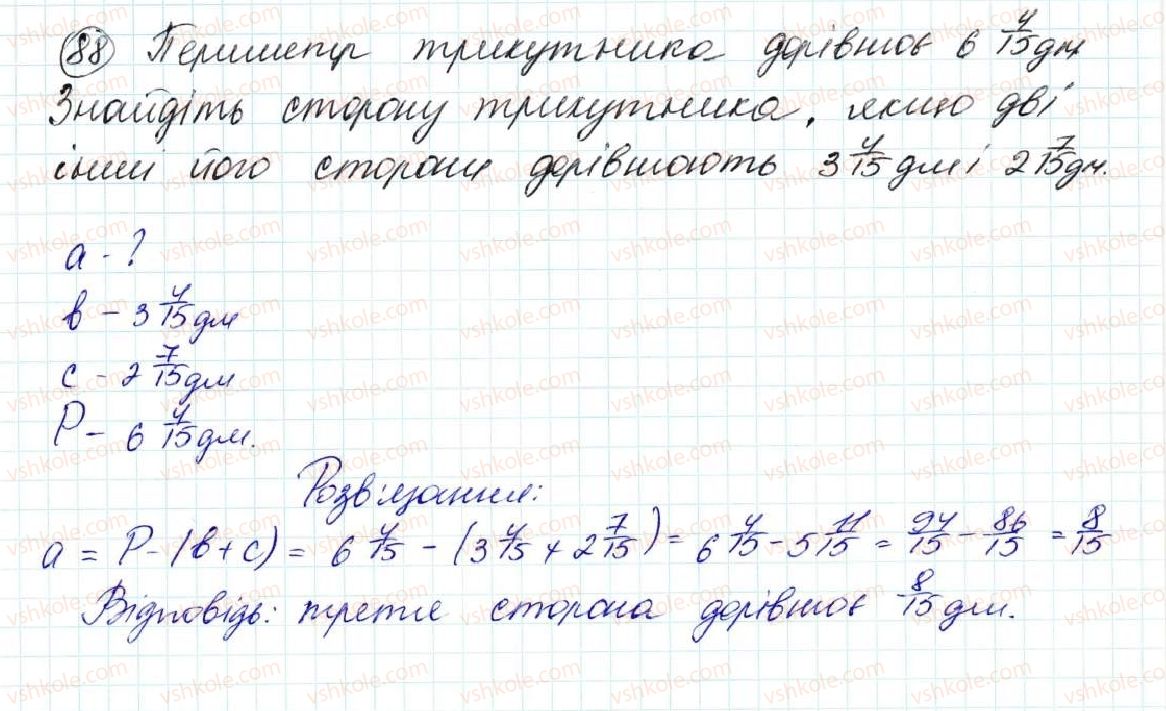 88 Периметр трикутника дорівнює 6 4/15 дм
Знайдіть сторону трикутника, якщо дві
інші його сторони дорівнюють 3 4/15 дм і 2 7/15 дм.
a - ?
b - 3 4/15 дм
c - 2 7/15 дм
P - 6 4/15 дм.
Розв'язання:
a = P - (b + c) = 6 4/15 - (3 4/15 + 2 7/15) = 6 4/15 - 5 11/15 = 94/15 - 86/15 = 8/15
Відповідь: третя сторона дорівнює 8/15 дм.